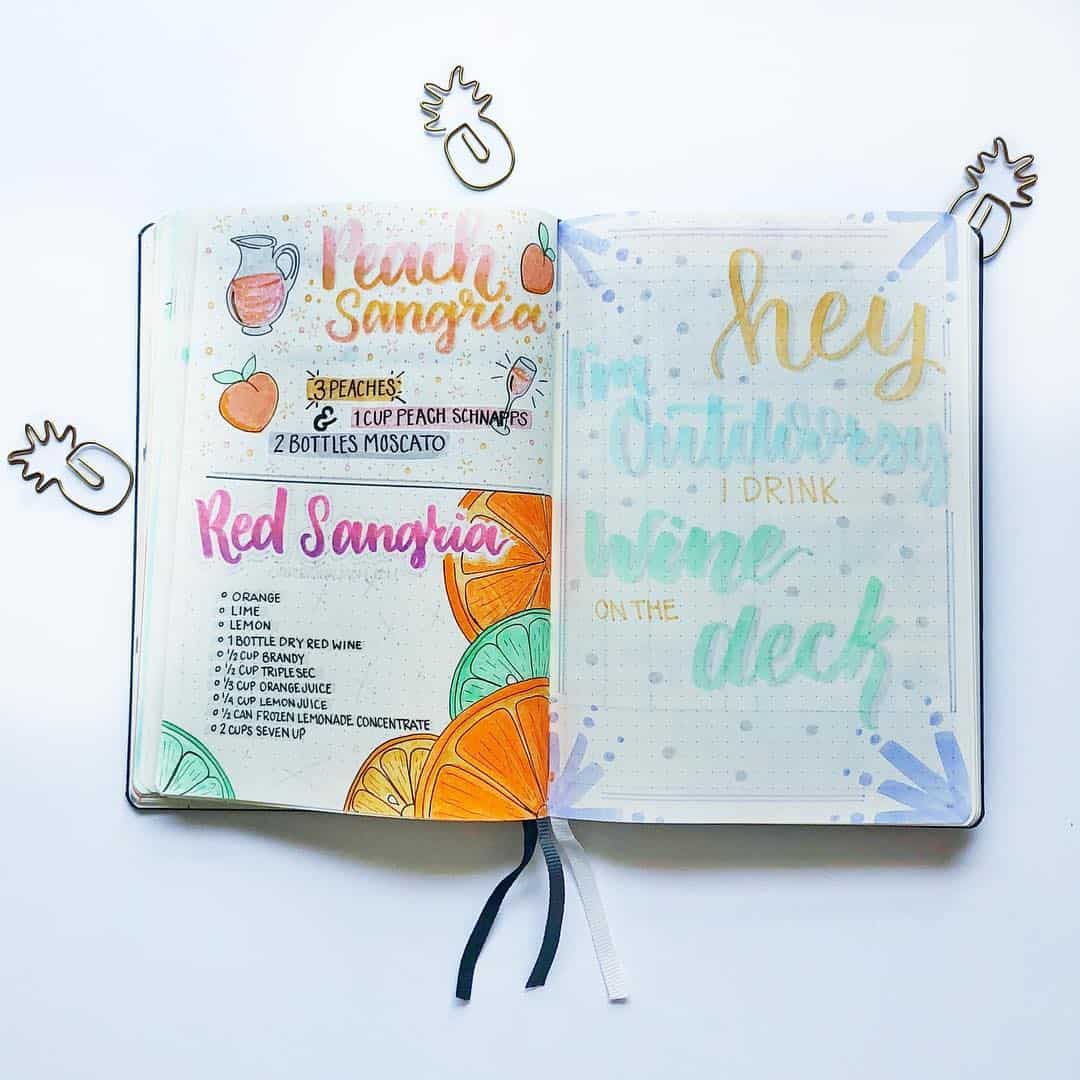 Peach
Sangria
3 PEACHES
& 1 CUP PEACH SCHNAPPS
2 BOTTLES MOSCATO
Red Sangria
ORANGE
LIME
LEMON
1 BOTTLE DRY RED WINE
1/2 CUP BRANDY
1/2 CUP TRIPLE SEC
1/3 CUP ORANGE JUICE
1/4 CUP LEMON JUICE
1/2 CAN FROZEN LEMONADE CONCENTRATE
2 CUPS SEVEN UP
hey
I'm
Outdoorsy
I DRINK
Wine
ON THE
deck